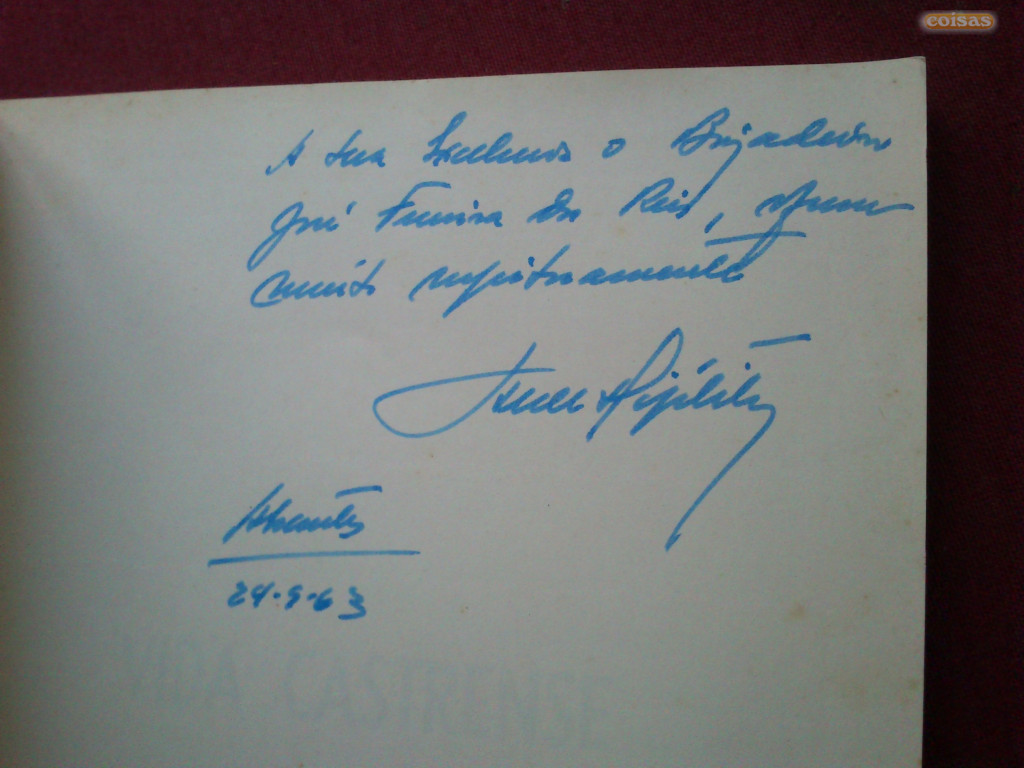 coisas
A Sua Excelencia o Brigadeiro
José Ferreira dos Reis, oferece
muito respeitosamente
Hipólito
Abrantes
24-9-63
VIDA CASTRENSE